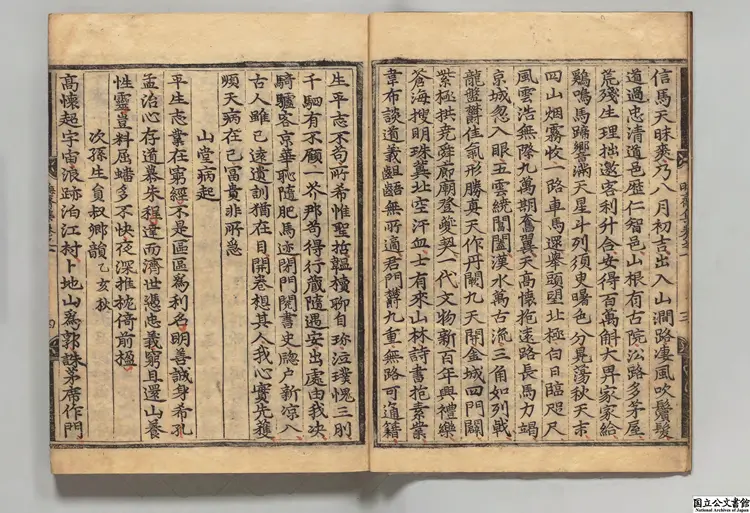 信馬天昧爽乃八月初吉出入山澗路凄風吹鬢髮
道過忠清道邑歷仁智邑山根有古院沿路多茅屋
荒殘生理拙邀客利升合安得百萬斛大畀家家給
鷄鳴馬蹄響滿天星斗列須臾曙色分晃蕩秋天末
四山烟霧收一路車馬還擧頭望北極向日臨咫尺
風雲浩無際九萬期奮翼天高懷抱遠路長馬力竭
京城忽入眼五雲繞閶闔漢水萬古流三角如列戟
龍盤欝佳氣形勝真天作丹闕九天開金城四門闢
紫極拱堯舜廊廟登夔契一代文物新百年興禮樂
蒼海搜明珠冀北空汗血士有來山林詩書抱素業
韋布談道義齟齬無所適君門欝九重無路可通籍
三
四
生平志不苟所希惟聖哲韞櫝聊自珎泣璞愧三刖
千駟有不顧一芥那苟得行藏隨遇安出處由我决
騎驢客京華恥隨肥馬迹閉門閱書史牕户新凉入
古人雖已遠遺訓猶在目開卷想其人我心實先獲
順天病在己富貴非所急
山堂病起
平生志業在窮經不是區區爲利名明善誠身希孔
孟治心存道慕朱程達而濟世憑忠義窮且還山養
性靈豈料屈蟠多不快夜深推枕倚前楹
次孫生負叔卿韻 乙亥秋
高懷起宇宙浪跡泊江村卜地山爲郭誅茅席作門
国立公文書館
National Archives of Japan